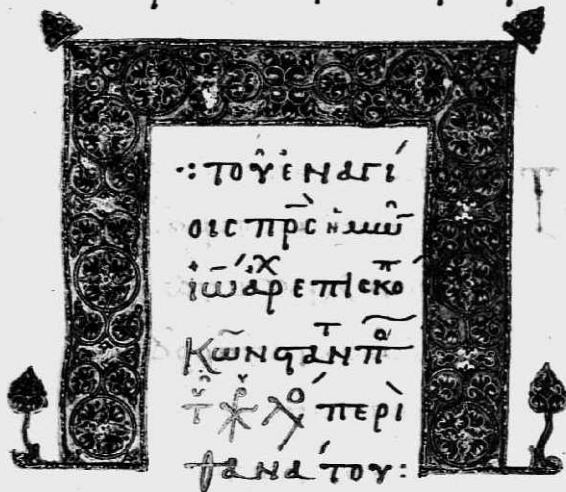 ·: τοῦ ἐν ἁγί
οις πρ̅ς ἡμῶ̅
ἰω̅ ἀρχεπισκό̅π
Κωνσταντ π̅ο
τ χρ λό περὶ
θανάτου: